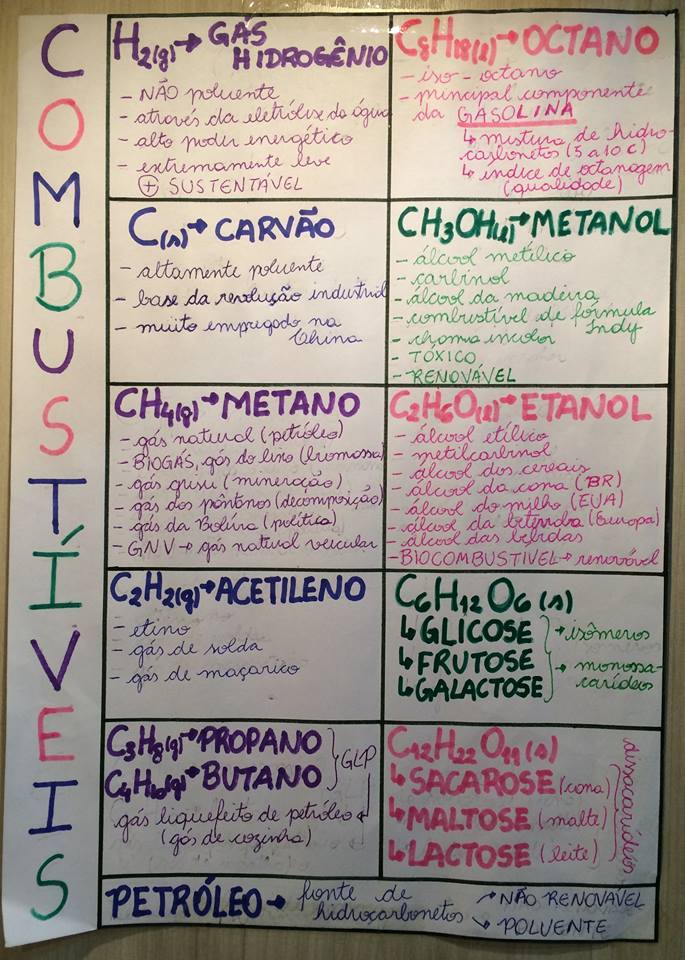 COMBUSTÍVEIS
H2(g) → GÁS
HIDROGÊNIO
- NÃO poluente
- através da eletrólise da água
- alto poder energético
- extremamente leve
⊕ SUSTENTÁVEL
C8H18(l) → OCTANO
- iso-octano
- principal componente
da GASOLINA
↳ mistura de hidro-
carboneto (5 a 10 C)
↳ índice de octanagem
(qualidade)
C(s) → CARVÃO
- altamente poluente
- base da revolução industrial
- muito empregado na
China
CH3OH(l) → METANOL
- álcool metílico
- carbinol
- álcool da madeira
- combustível de fórmula
Indy
- chama incolor
- TÓXICO
- RENOVÁVEL
CH4(g) → METANO
- gás natural (petróleo)
- BIOGÁS, gás do lixo (biomassa)
- gás grisu (mineração)
- gás dos pântanos (decomposição)
- gás da Bolívia (política)
- GNV → gás natural veicular
C2H6O(l) → ETANOL
- álcool etílico
- metilcarbinol
- álcool dos cereais
- álcool da cana (BR)
- álcool do milho (EUA)
- álcool da beterraba (Europa)
- álcool das bebidas
- BIOCOMBUSTÍVEL → renovável
C2H2(g) → ACETILENO
- etino
- gás de solda
- gás de maçarico
C6H12O6(s)
↳ GLICOSE → isômeros
↳ FRUTOSE → monossa-
↳ GALACTOSE carídeos
C3H8(g) → PROPANO
C4H10(g) → BUTANO
GLP
gás liquefeito de petróleo
(gás de cozinha)
C12H22O11(s)
↳ SACAROSE (cana)
↳ MALTOSE (malte)
↳ LACTOSE (leite)
dissacarídeos
PETRÓLEO → fonte de
hidrocarbonetos
→ NÃO RENOVÁVEL
→ POLUENTE